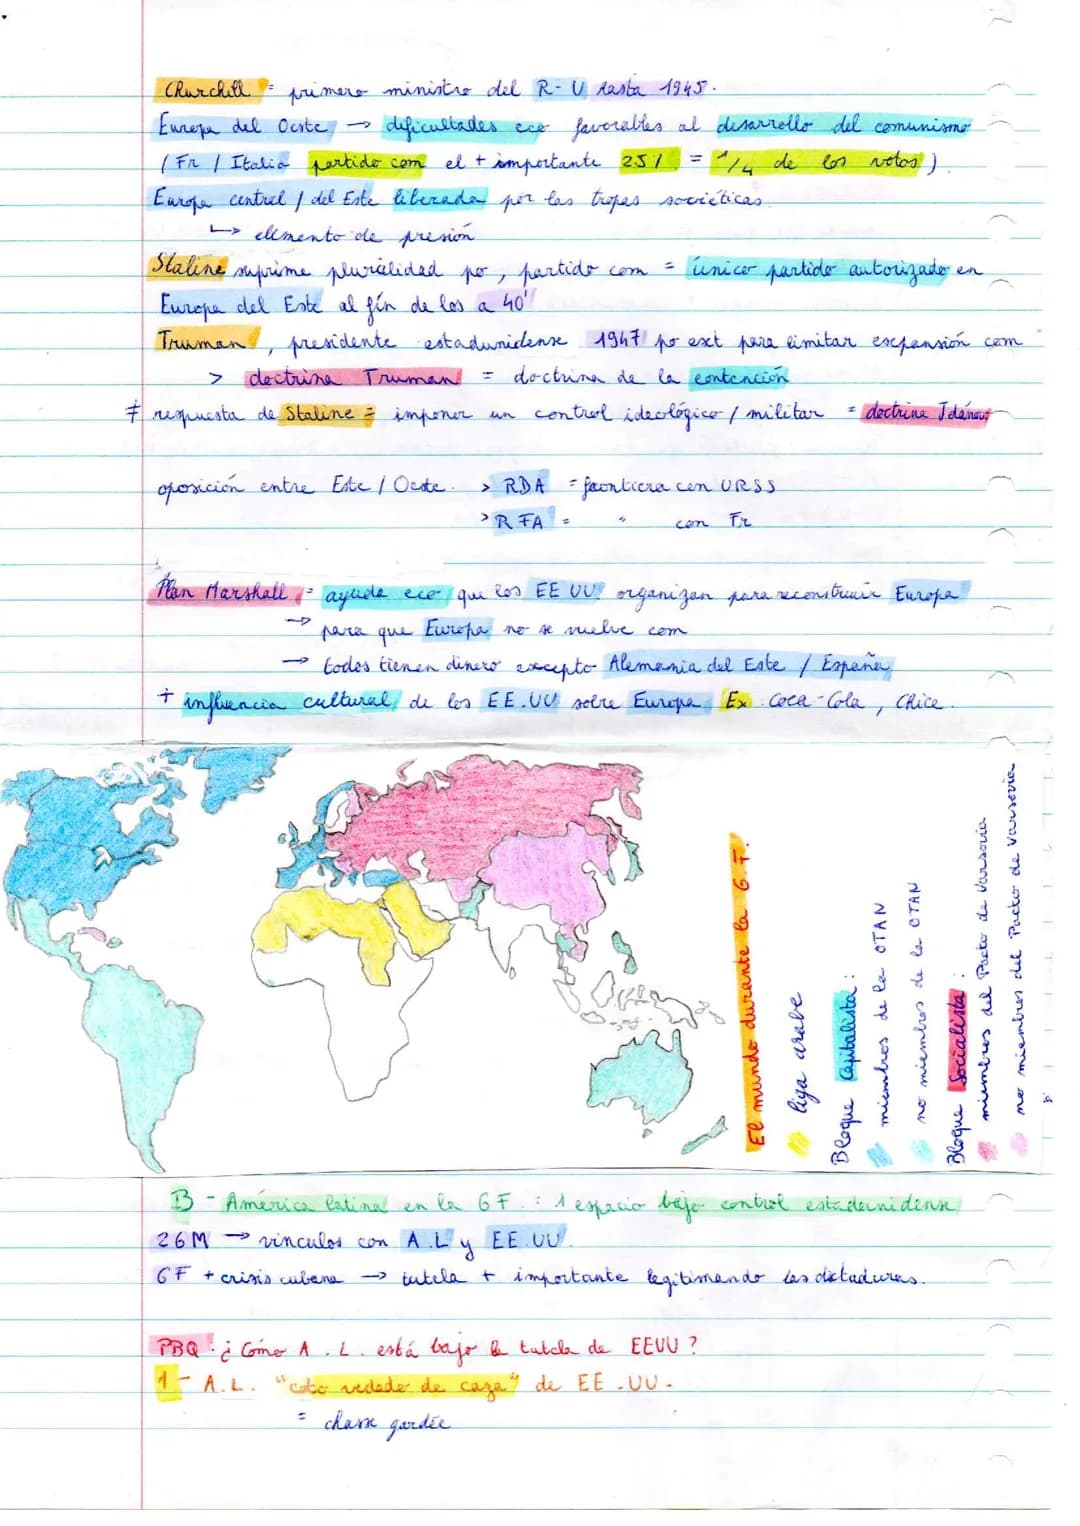 Churchill = primero ministro del R-U hasta 1945.
Europa del Oeste → dificultades eco favorables al desarrollo del comunismo
(Fr / Italia partido com el + importante 25% = 1/4 de los votos).
Europa central / del Este liberada por las tropas soviéticas.
↳ elemento de presión
Staline suprime pluralidad po, partido com = único partido autorizado en
Europa del Este al fin de los a 40'
Truman, presidente estadunidense 1947 po ext para limitar expansión com
> doctrina Truman = doctrina de la contención
≠ respuesta de Staline = imponer un control ideológico / militar = doctrina Jdánov
oposición entre Este / Oeste. > RDA = frontiera con URSS
> RFA = " con Fr
Plan Marshall = ayuda eco que los EE UU organizan para reconstruir Europa
→ para que Europa no se vuelve com
→ todos tienen dinero excepto Alemania del Este / España
+ influencia cultural de los EE.UU sobre Europa. Ex Coca-Cola, Chice.
El mundo durante la G.F.
liga arabe
Bloque Capitalista :
miembros de la OTAN
no miembros de la OTAN
Bloque Socialista :
miembros del Pacto de Varsovia
no miembros del Pacto de Varsovia
B - América latina en la GF. : 1 espacio bajo control estadunidense
26M → vinculos con A.L y EE.UU.
GF + crisis cubana → tutela + importante legitimando las dictaduras.
PBQ : ¿ Cómo A.L. está bajo la tutela de EEUU ?
1 - A.L. "coto vedado de caza" de EE.UU.
= chasse gardée